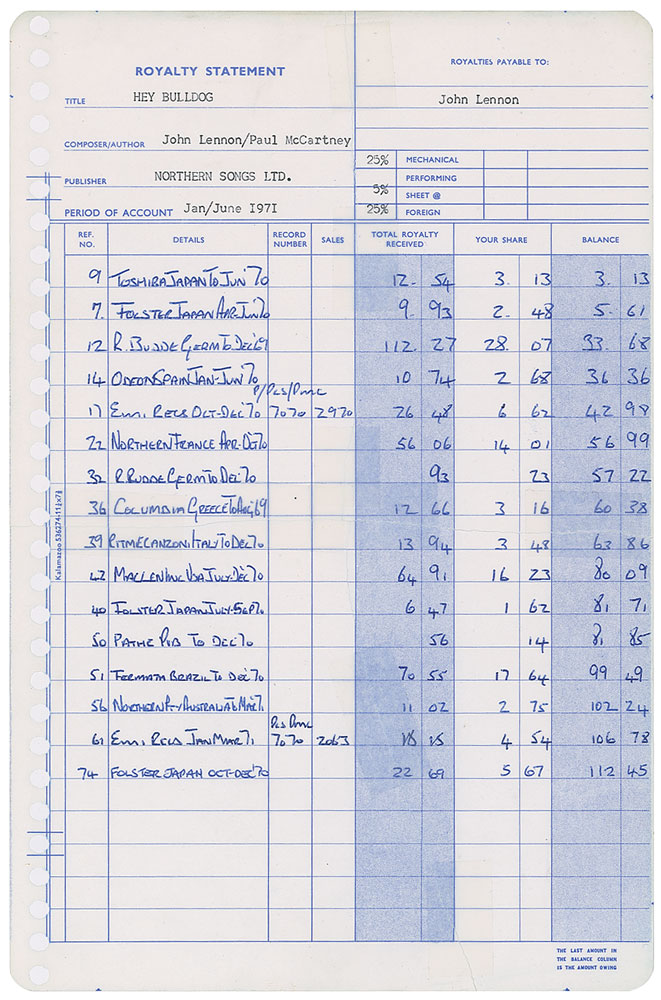 ROYALTY STATEMENT
ROYALTIES PAYABLE TO:
TITLE HEY BULLDOG
John Lennon
COMPOSER/AUTHOR John Lennon/Paul McCartney
25% MECHANICAL
PUBLISHER NORTHERN SONGS LTD.
PERFORMING
5% SHEET @
PERIOD OF ACCOUNT Jan/June I97I
25% FOREIGN
REF. NO. DETAILS RECORD NUMBER SALES TOTAL ROYALTY RECEIVED YOUR SHARE BALANCE
9 TOSHIBA JAPAN TO JUN '70 12. 54 3. 13 3. 13
7. FOLSTER JAPAN APR-JUN 70 9. 93 2. 48 5. 61
12 R. BUDDE GERM TO DEC '69 112. 27 28. 07 33. 68
14 ODEON SPAIN JAN-JUN '70 10 74 2 68 36 36
P/PCS/PMC
17 EMI RECS OCT-DEC '70 7070 2970 26 48 6 62 42 98
22 NORTHERN FRANCE APR-DEC 70 56 06 14 01 56 99
32 R. BUDDE GERM TO DEC '70 93 23 57 22
36 COLUMBIA GREECE TO AUG '69 12 66 3 16 60 38
39 RITMI E CANZONI ITALY TO DEC 70 13 94 3 48 63 86
42 MACLEN INC USA JULY-DEC '70 64 91 16 23 80 09
40 FOLSTER JAPAN JULY-SEP 70 6 47 1 62 81 71
50 PATHE TO DEC '70 56 14 81 85
51 FERMATA BRAZIL TO DEC '70 70 55 17 64 99 49
56 NORTHERN AUSTRALIA TO MAR 71 11 02 2 75 102 24
PCS PMC
61 EMI RECS JAN MAR 71 7070 2063 18 15 4 54 106 78
74 FOLSTER JAPAN OCT-DEC '70 22 69 5 67 112 45
Kalamazoo 536274-11¾x7¾
THE LAST AMOUNT IN
THE BALANCE COLUMN
IS THE AMOUNT OWING